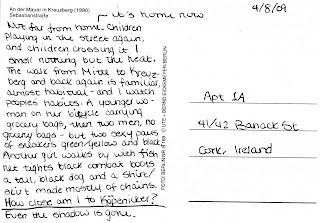 An der Mauer in Kreuzberg (1990)
Sebastianstraße
it's home now
4/8/09
Not far from home. Children
playing in the street again,
and children crossing it. I
smell nothing but the heat.
The walk from Mitte to Kreuz-
berg and back again is familiar,
almost habitual - and I watch
peoples habits. A younger wo-
man on her bicycle carrying
grocery bags, then two men, no
grocery bags - but two sexy pairs
of sneakers green/yellow and black
Another girl walks by with fish
net tights black combat boots
a tall, black dog and a shirt/
skirt made mostly of chains.
How close am I to Köpenicker?
Even the shadow is gone.
Apt 1A
41/42 Banack St
Cork, Ireland